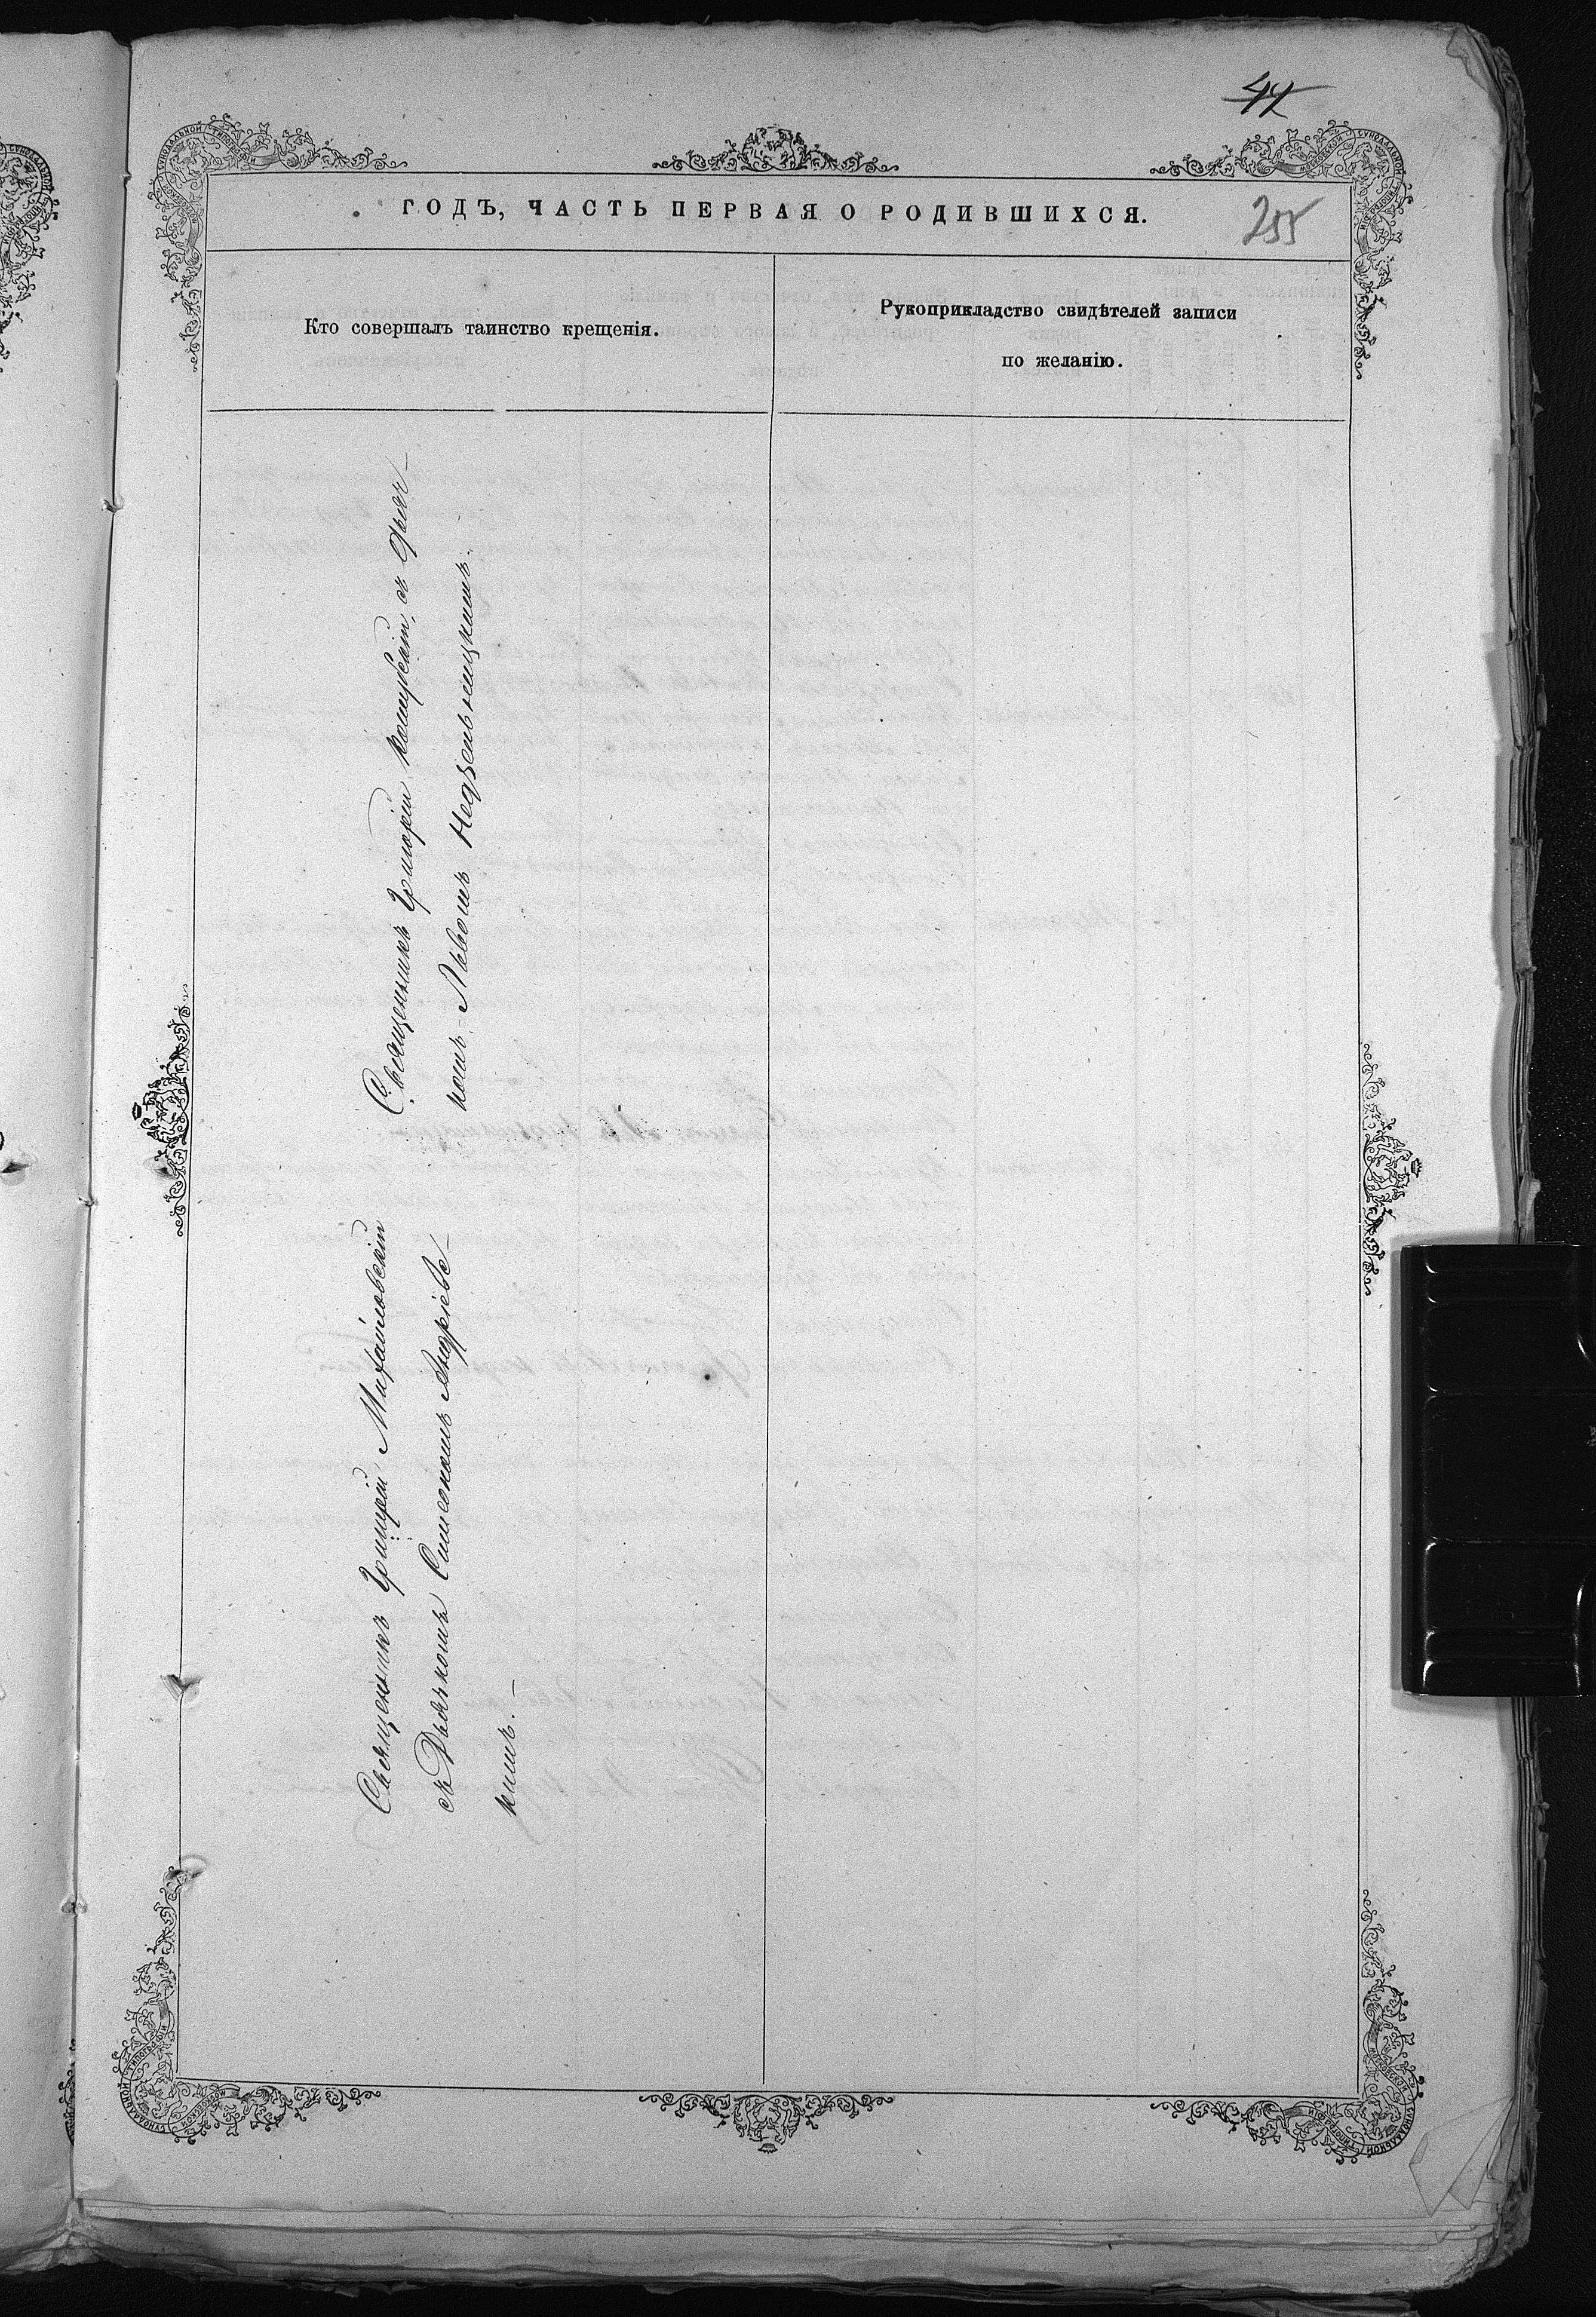 44
ГОДЪ, ЧАСТЬ ПЕРВАЯ О РОДИВШИХСЯ.
255
Кто совершалъ таинство крещенія.
Рукоприкладство свидѣтелей записи
по желанію.
Священникъ Григорій съ Дьяч-
комъ Львомъ Недзельницкимъ.
Священникъ Григорій Михайловскій
съ Дьячкомъ Симеономъ Андріевс-
кимъ.